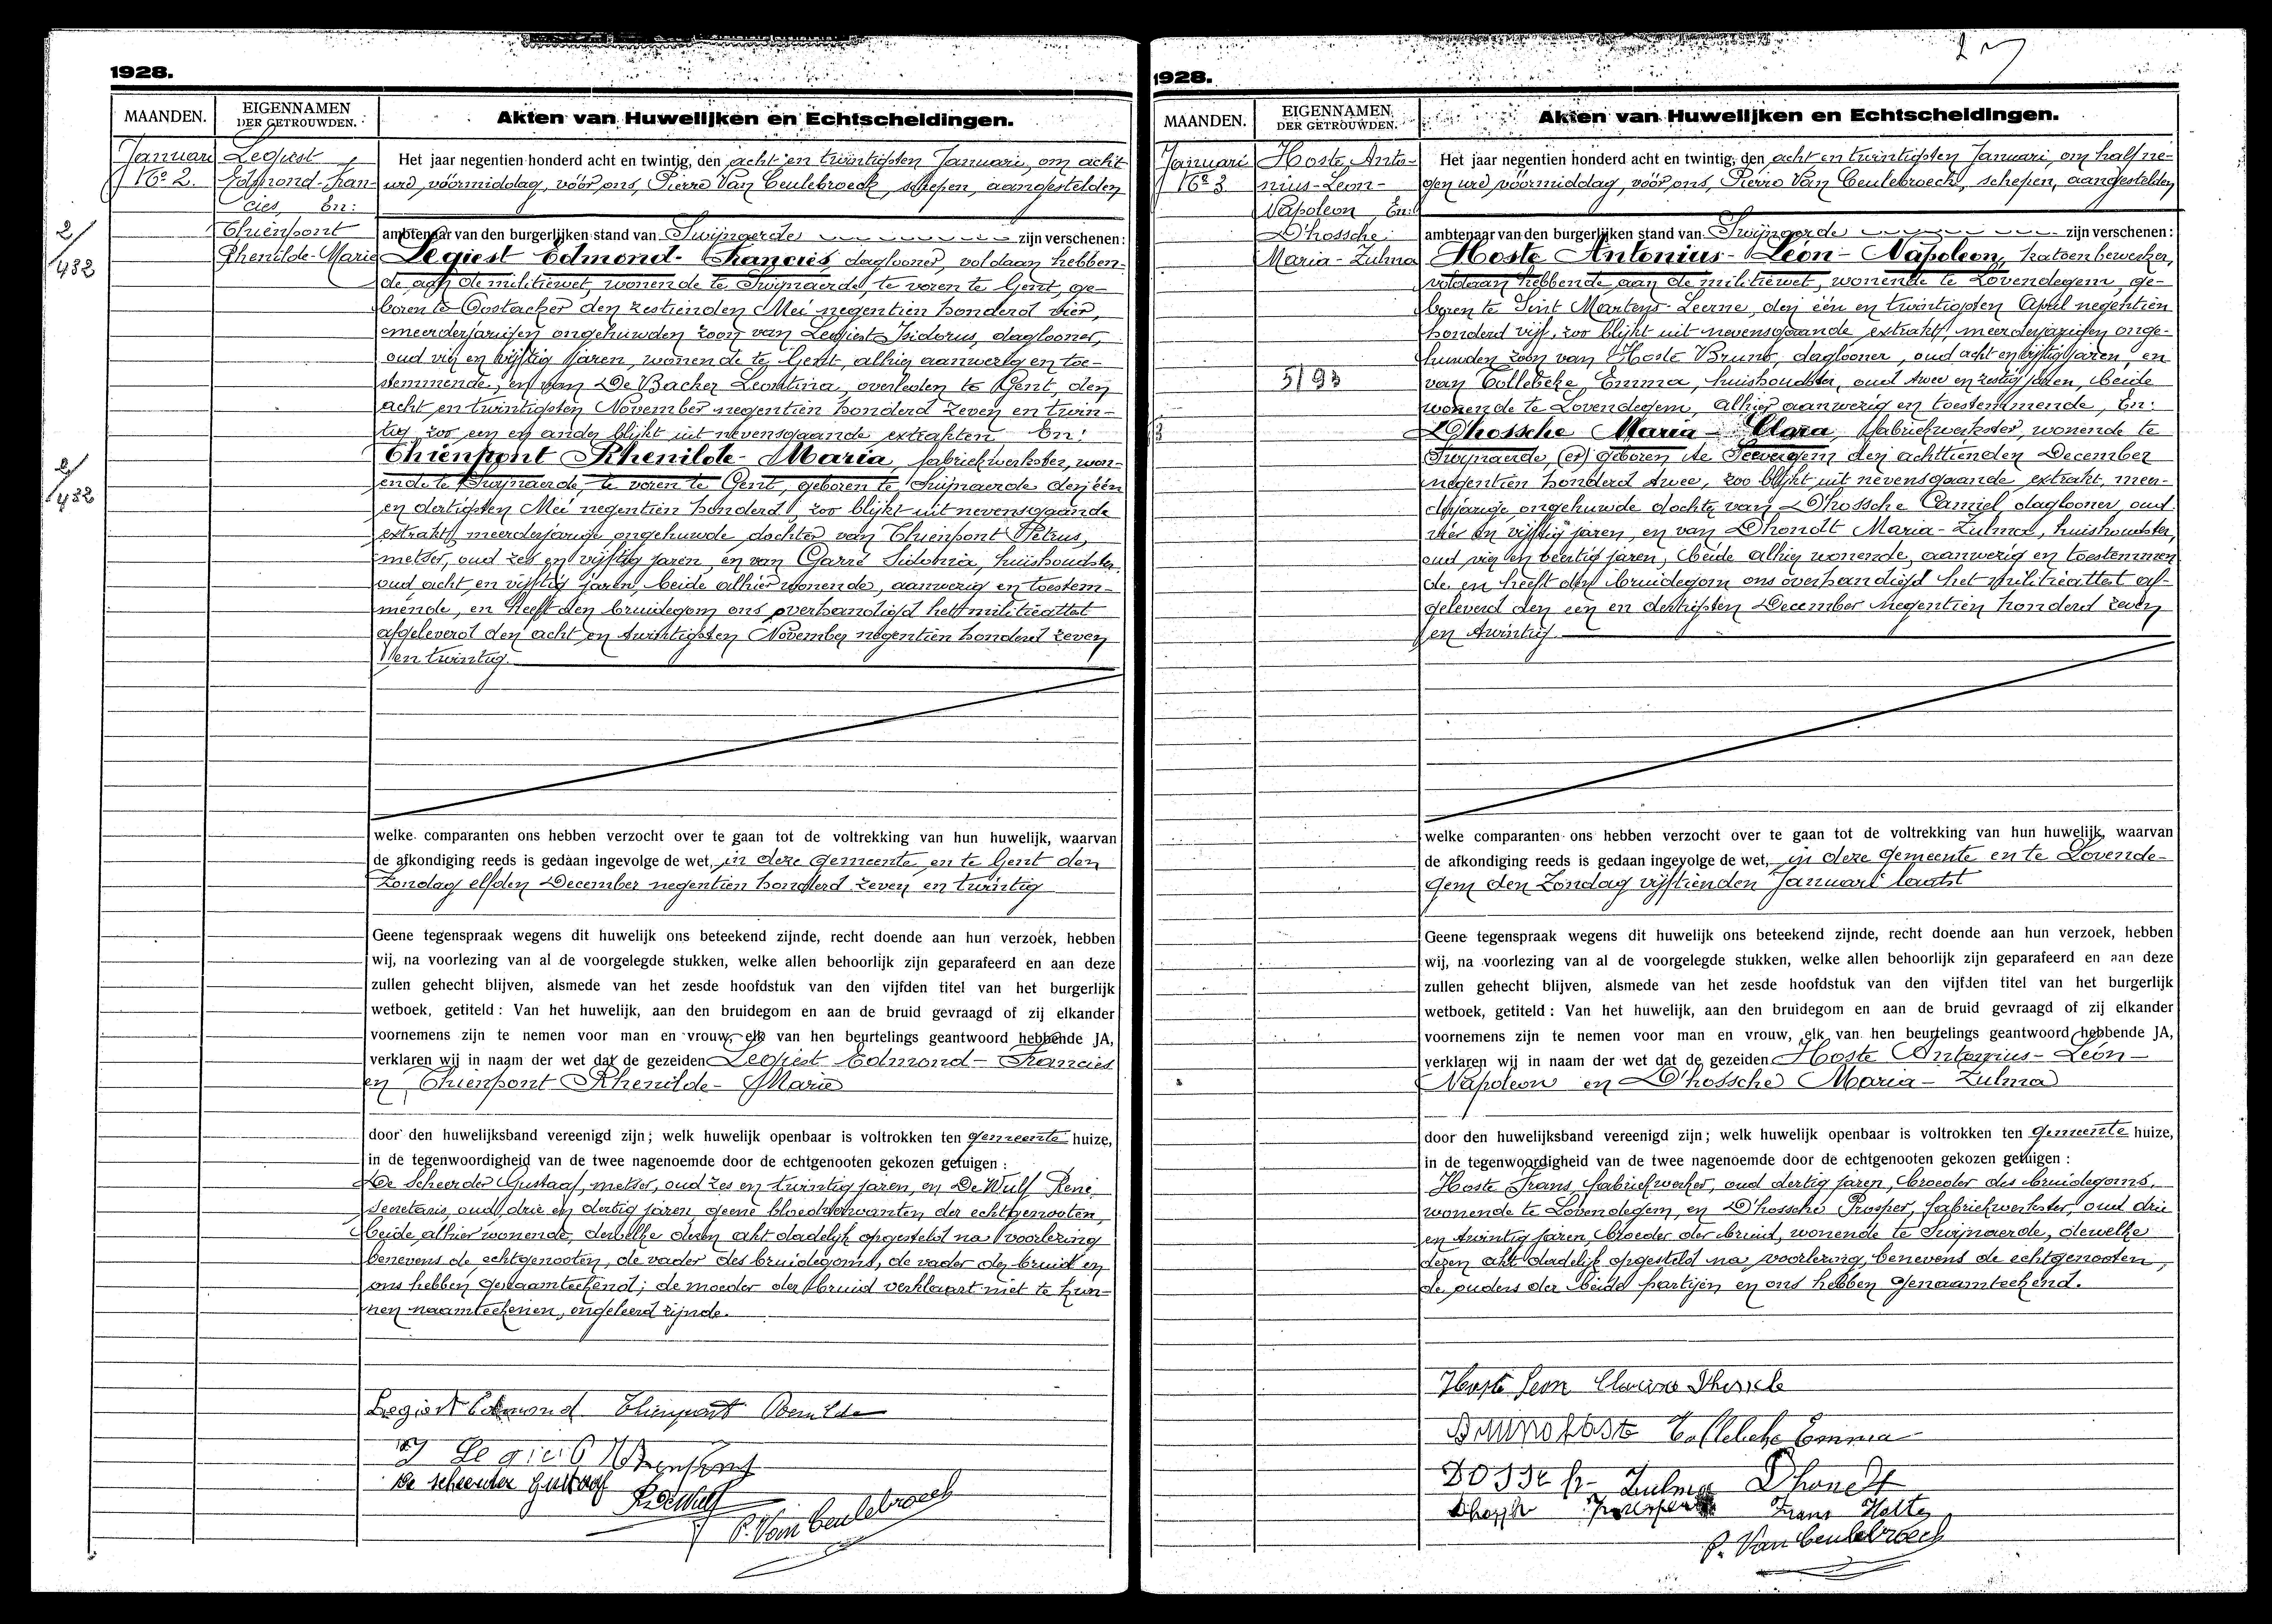 1928.
MAANDEN.
EIGENNAMEN
DER GETROUWDEN.
Akten van Huwelijken en Echtscheidingen.
Januari
No 2.
Legiest
Edmond-Fran-
cies, En:
Thienpont
Rhenilde-Marie
2/432
2/432
Het jaar negentien honderd acht en twintig, den acht en twintigsten Januari, om acht
ure vóórmiddag, vóór ons, Pierre Van Ceulebroeck, schepen, aangestelden
ambtenaar van den burgerlijken stand van Swijnaerde zijn verschenen:
Legiest Edmond-Francies, daglooner, voldaan hebben-
de aan de militiewet, wonende te Swijnaerde, te voren te Gent, ge-
boren te Oostacker den zestienden Mei negentien honderd vier,
meerderjarigen ongehuwden zoon van Legiest Isidorus, daglooner,
oud vier en vijftig jaren, wonende te Gent, alhier aanwezig en toe-
stemmende, en van De Backer Leontina, overleden te Gent, den
acht en twintigsten November negentien honderd zeven en twin-
tig, zoo een en ander blijkt uit nevensgaande extrakten En:
Thienpont Rhenilde-Maria, fabriekwerkster, won-
ende te Swijnaerde, te voren te Gent, geboren te Swijnaerde den één
en dertigsten Mei negentien honderd, zoo blijkt uit nevensgaande
extrakt, meerderjarige ongehuwde dochter van Thienpont Petrus,
metser, oud zes en vijftig jaren, en van Carré Sidonia, huishoudster,
oud acht en vijftig jaren, beide alhier wonende, aanwezig en toestem-
mende, en heeft den bruidegom ons overhandigd het militieattest
afgeleverd den acht en twintigsten November negentien honderd zeven
en twintig.
welke comparanten ons hebben verzocht over te gaan tot de voltrekking van hun huwelijk, waarvan
de afkondiging reeds is gedaan ingevolge de wet, in deze gemeente en te Gent den
Zondag elfden December negentien honderd zeven en twintig
Geene tegenspraak wegens dit huwelijk ons beteekend zijnde, recht doende aan hun verzoek, hebben
wij, na voorlezing van al de voorgelegde stukken, welke allen behoorlijk zijn geparafeerd en aan deze
zullen gehecht blijven, alsmede van het zesde hoofdstuk van den vijfden titel van het burgerlijk
wetboek, getiteld : Van het huwelijk, aan den bruidegom en aan de bruid gevraagd of zij elkander
voornemens zijn te nemen voor man en vrouw, elk van hen beurtelings geantwoord hebbende JA,
verklaren wij in naam der wet dat de gezeiden Legiest Edmond-Francies
en Thienpont Rhenilde-Marie
door den huwelijksband vereenigd zijn; welk huwelijk openbaar is voltrokken ten gemeente huize,
in de tegenwoordigheid van de twee nagenoemde door de echtgenooten gekozen getuigen :
De Scheerder Gustaaf, metser, oud zes en twintig jaren, en De Wulf René,
secretaris, oud drie en dertig jaren, geene bloedverwanten der echtgenooten,
beide alhier wonende, dewelke dezen akt dadelijk opgesteld na voorlezing
benevens de echtgenooten, de vader des bruidegoms, de vader der bruid en
ons hebben genaamteekend; de moeder der bruid verklaart niet te kun-
nen naamteekenen, ongeleerd zijnde.
Legiest Edmond Thienpont Renilde
J Legiest Thienpont
De scheerder gustaaf
R. DeWulf
P. Van Ceulebroeck
1928.
MAANDEN.
EIGENNAMEN
DER GETROUWDEN.
Akten van Huwelijken en Echtscheidingen.
Januari
No 3
Hoste, Anto-
nius-Leon-
Napoleon, En:
D'hossche
Maria-Zulma
5/93
Het jaar negentien honderd acht en twintig, den acht en twintigsten Januari, om half ne-
gen ure vóórmiddag, vóór ons, Pierre Van Ceulebroeck, schepen, aangestelden
ambtenaar van den burgerlijken stand van Swijnaerde zijn verschenen:
Hoste Antonius-Léon-Napoleon, katoenbewerker,
voldaan hebbende aan de militiewet, wonende te Lovendegem, ge-
boren te Sint Martens-Leerne, den één en twintigsten April negentien
honderd vijf, zoo blijkt uit nevensgaande extrakt, meerderjarigen onge-
huwden zoon van Hoste Bruno, daglooner, oud acht en vijftig jaren, en
van Collebeke, Emma, huishoudster, oud twee en zestig jaren, beide
wonende te Lovendegem, alhier aanwezig en toestemmende, En:
D'hossche Maria-Clara, fabriekwerkster, wonende te
Swijnaerde, (er) geboren te Seevergem den achttienden December
negentien honderd twee, zoo blijkt uit nevensgaande extrakt, meer-
derjarige ongehuwde dochter van D'hossche Camiel, daglooner, oud
vier en vijftig jaren, en van Dhondt Maria-Zulma, huishoudster,
oud vier en veertig jaren, beide alhier wonende, aanwezig en toestemmen
de en heeft den bruidegom ons overhandigd het militieattest af-
geleverd den een en dertigsten December negentien honderd zeven
en twintig.
welke comparanten ons hebben verzocht over te gaan tot de voltrekking van hun huwelijk, waarvan
de afkondiging reeds is gedaan ingevolge de wet, in deze gemeente en te Lovende-
gem den Zondag vijftienden Januari laatst
Geene tegenspraak wegens dit huwelijk ons beteekend zijnde, recht doende aan hun verzoek, hebben
wij, na voorlezing van al de voorgelegde stukken, welke allen behoorlijk zijn geparafeerd en aan deze
zullen gehecht blijven, alsmede van het zesde hoofdstuk van den vijfden titel van het burgerlijk
wetboek, getiteld : Van het huwelijk, aan den bruidegom en aan de bruid gevraagd of zij elkander
voornemens zijn te nemen voor man en vrouw, elk van hen beurtelings geantwoord hebbende JA,
verklaren wij in naam der wet dat de gezeiden Hoste Antonius-Léon-
Napoleon en D'hossche Maria-Zulma
door den huwelijksband vereenigd zijn; welk huwelijk openbaar is voltrokken ten gemeente huize,
in de tegenwoordigheid van de twee nagenoemde door de echtgenooten gekozen getuigen :
Hoste Frans, fabriekwerker, oud dertig jaren, broeder des bruidegoms,
wonende te Lovendegem, en D'hossche Prosper, fabriekwerkster, oud drie
en twintig jaren, broeder der bruid, wonende te Swijnaerde, dewelke
dezen akt dadelijk opgesteld na voorlezing, benevens de echtgenooten,
de ouders der beide partijen en ons hebben genaamteekend.
Hoste Leon
Bruno Hoste Collebeke Emma
Zulma Dhondt
Frans Hoste
P. Van Ceulebroeck